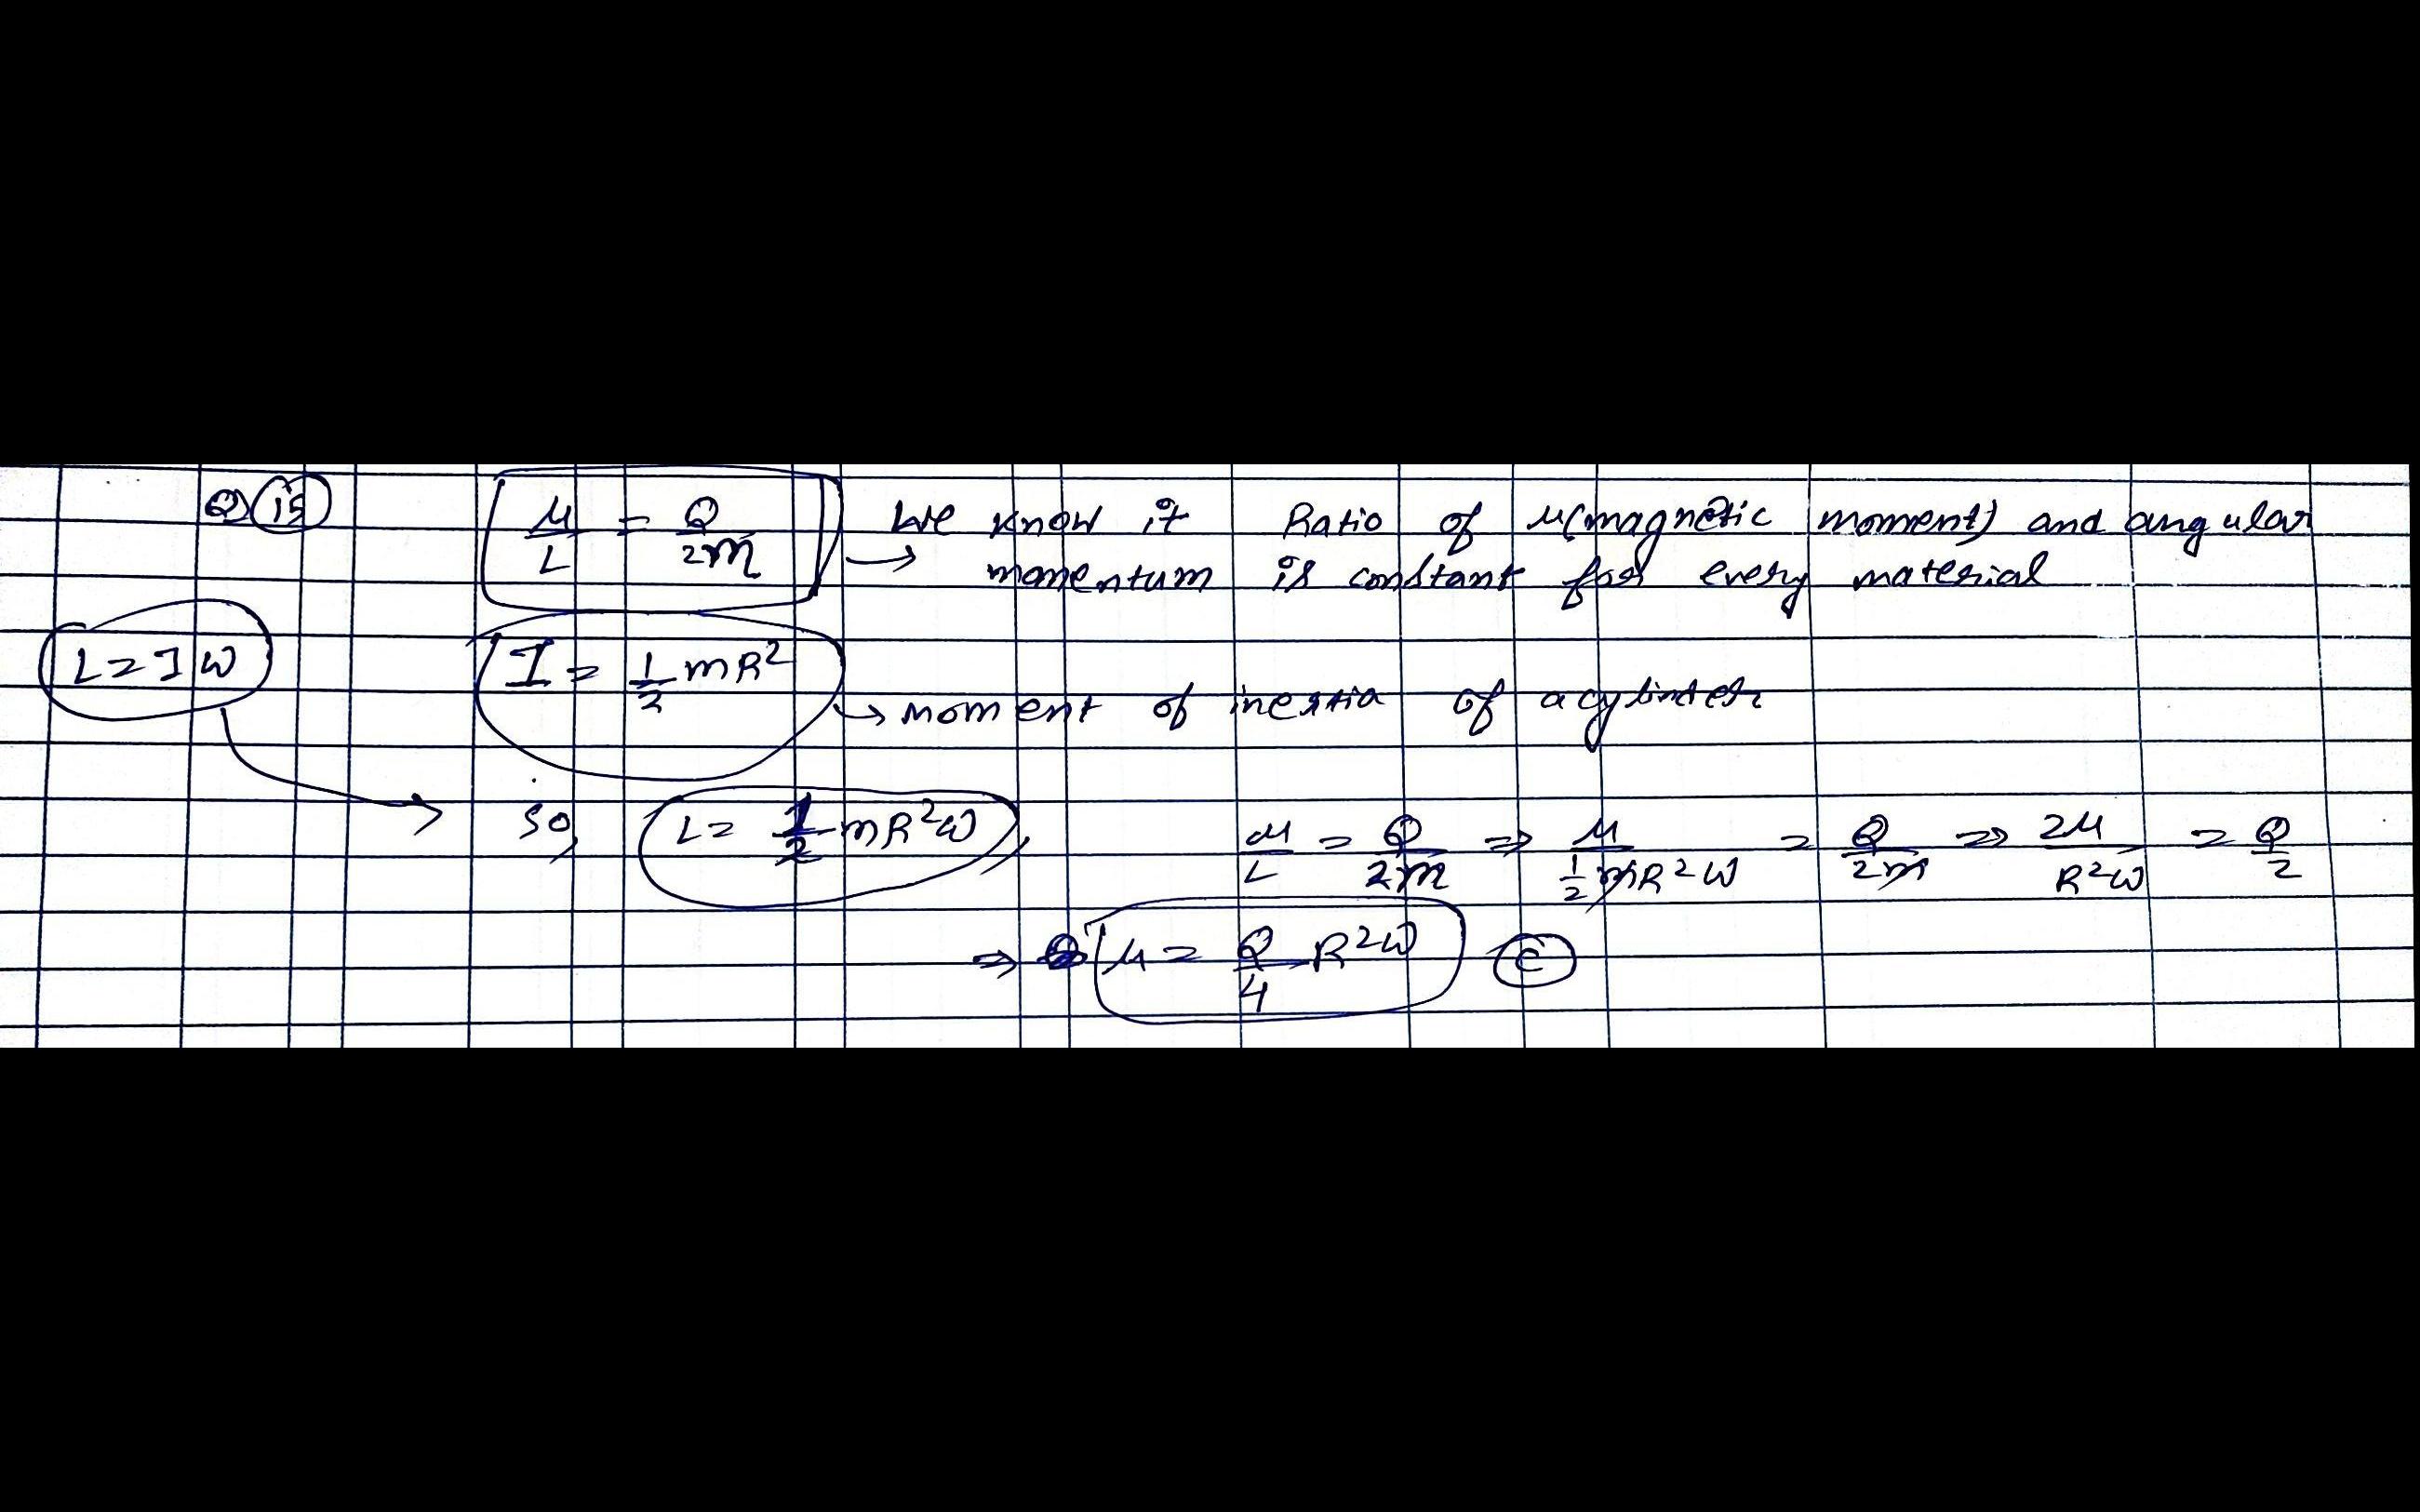 Q) 15 μ/L = Q/2m → We know it Ratio of μ(magnetic moment) and angular
momentum is constant for every material
L = Iω I = 1/2 mR² → moment of inertia of a cylinder
so, L = 1/2 mR²ω μ/L = Q/2m ⇒ μ/(1/2 mR²ω) = Q/2m ⇒ 2μ/R²ω = Q/2
⇒ μ = Q/4 R²ω C